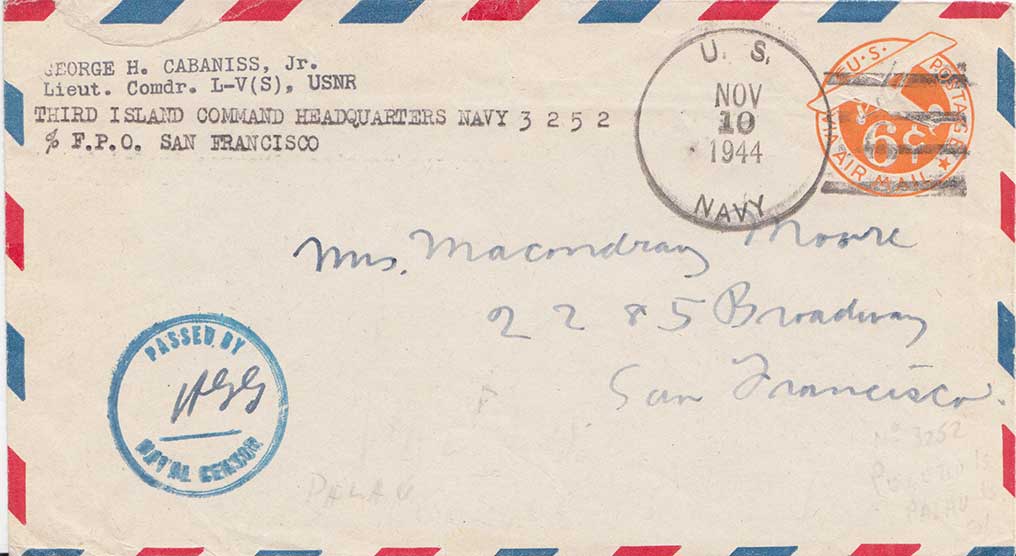 GEORGE H. CABANISS, Jr.
Lieut. Comdr. L-V(S), USNR
THIRD ISLAND COMMAND HEADQUARTERS NAVY 3 2 5 2
c/o F.P.O. SAN FRANCISCO
U. S.
NOV
10
1944
NAVY
U.S. POSTAGE
6¢
VIA AIR MAIL
Mrs. Macondray Moore
2285 Broadway
San Francisco.
PASSED BY
NAVAL CENSOR
No 3252
PALAU Is
PALAU